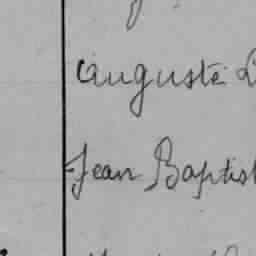 Auguste
Jean Baptist